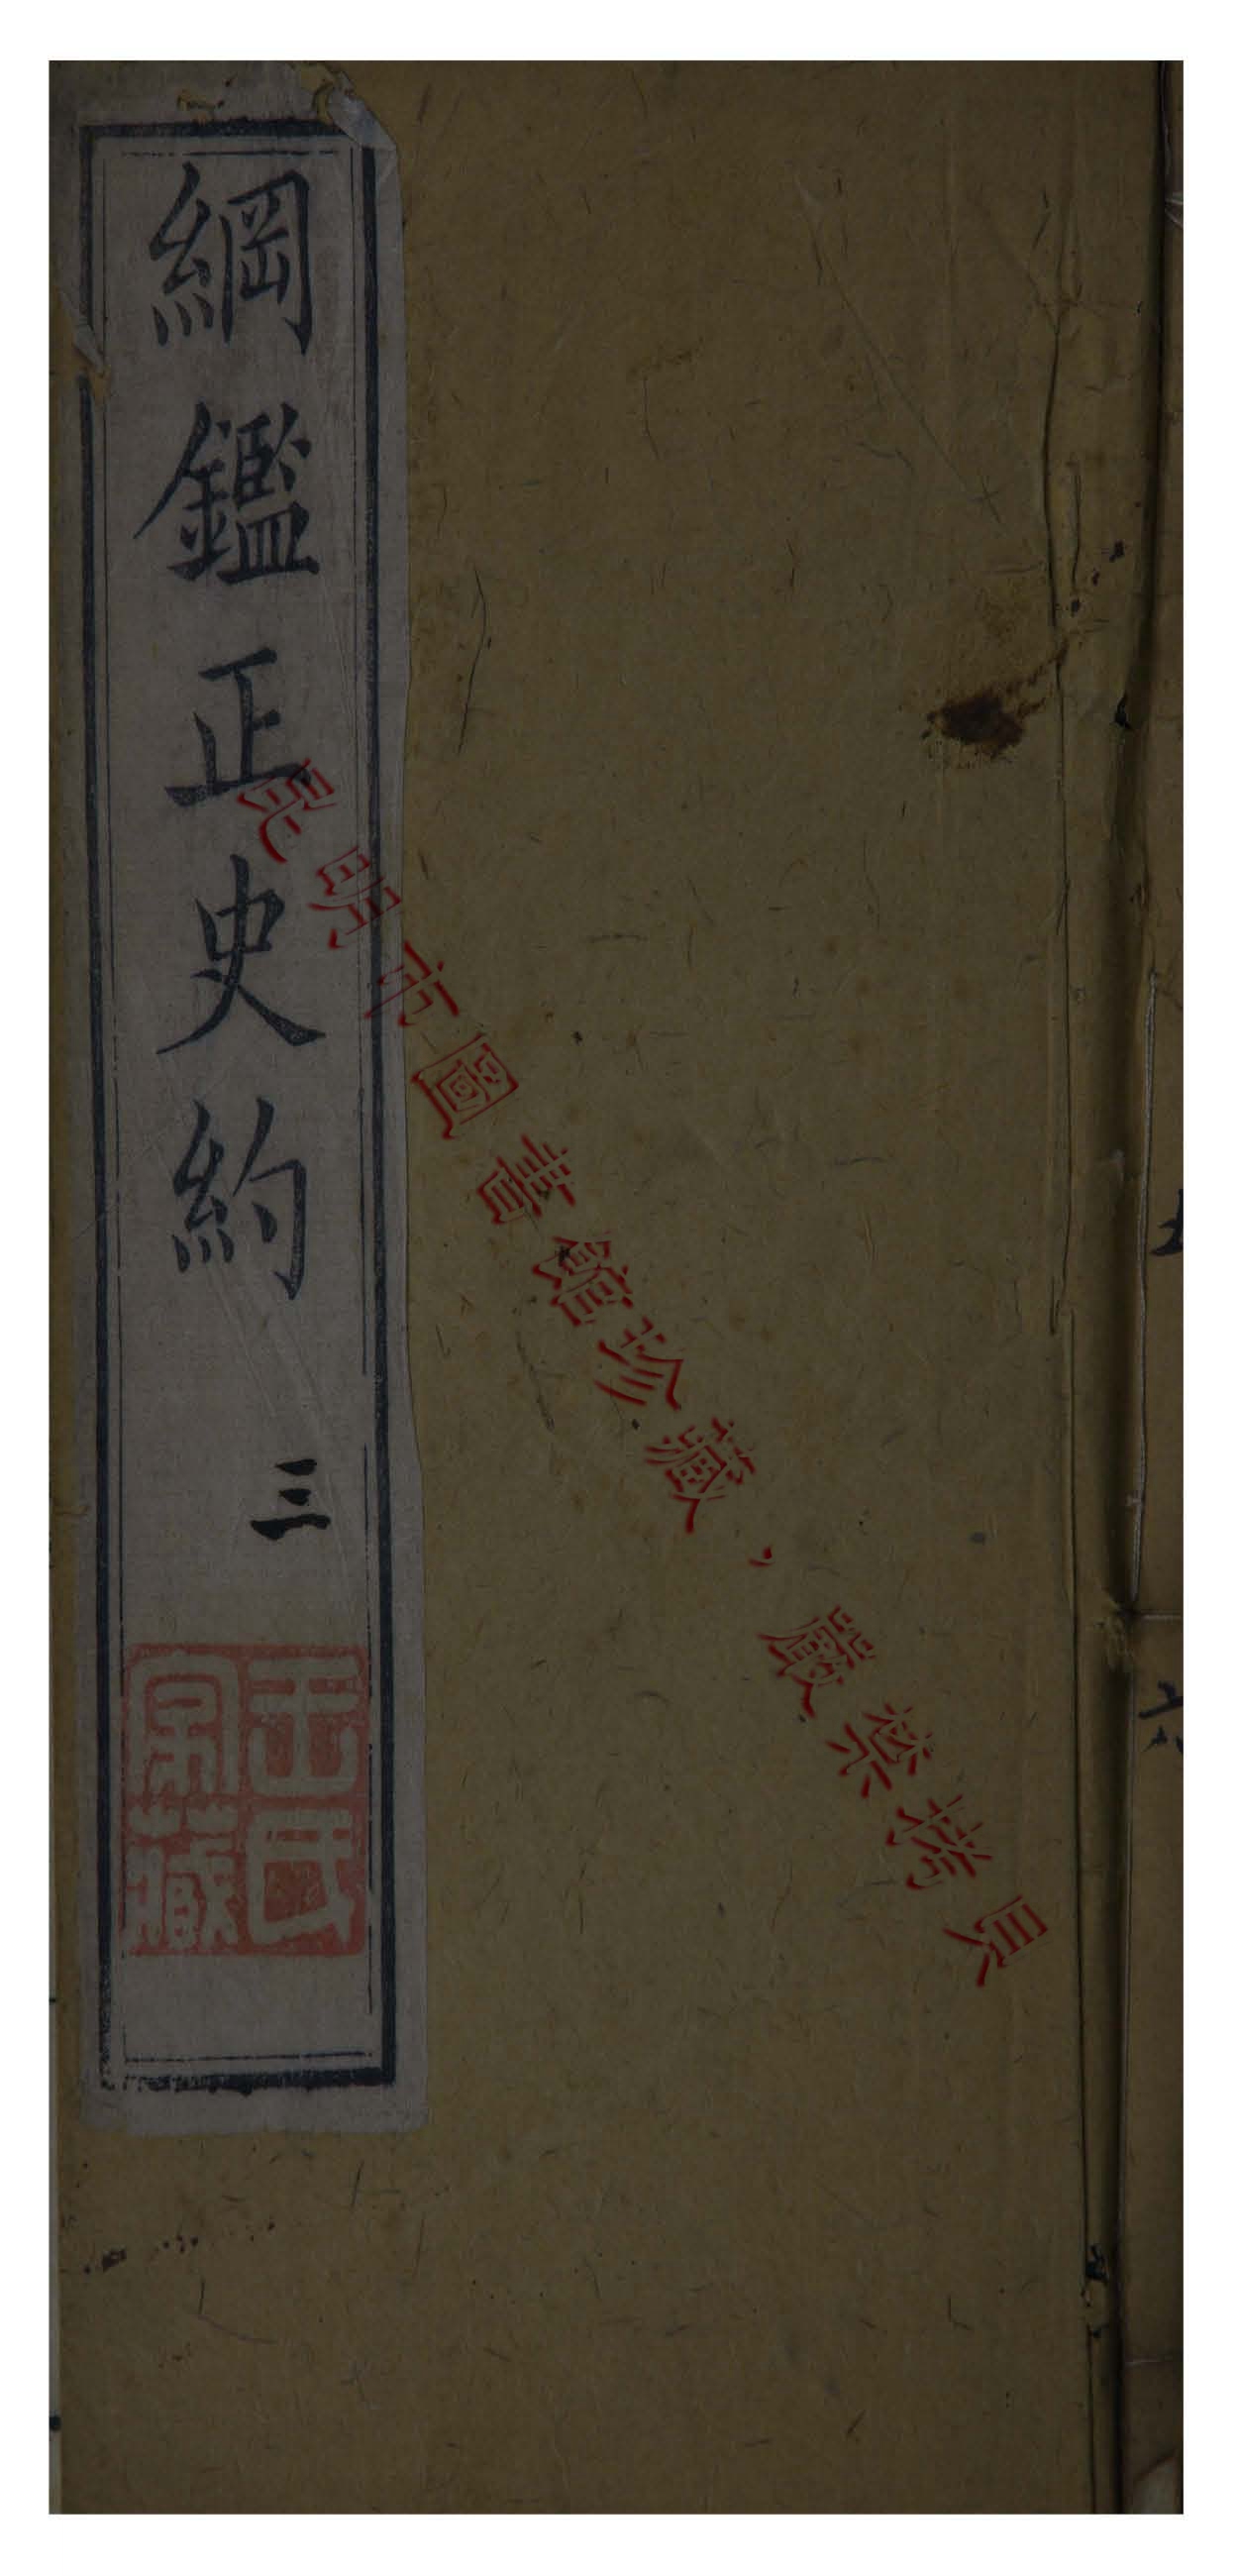 綱鑑正史約
三
王氏
家藏
昆明市圖書館珍藏，嚴禁拷貝
六